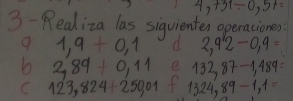 4,731-0,51=
3-Realiza las siguientes operaciones:
a 1,9 + 0,1 d 2,92-0,9=
b 2,89 + 0,11 e 132,87-1,489=
c 123,824+25901 f 1324,89-1,1=